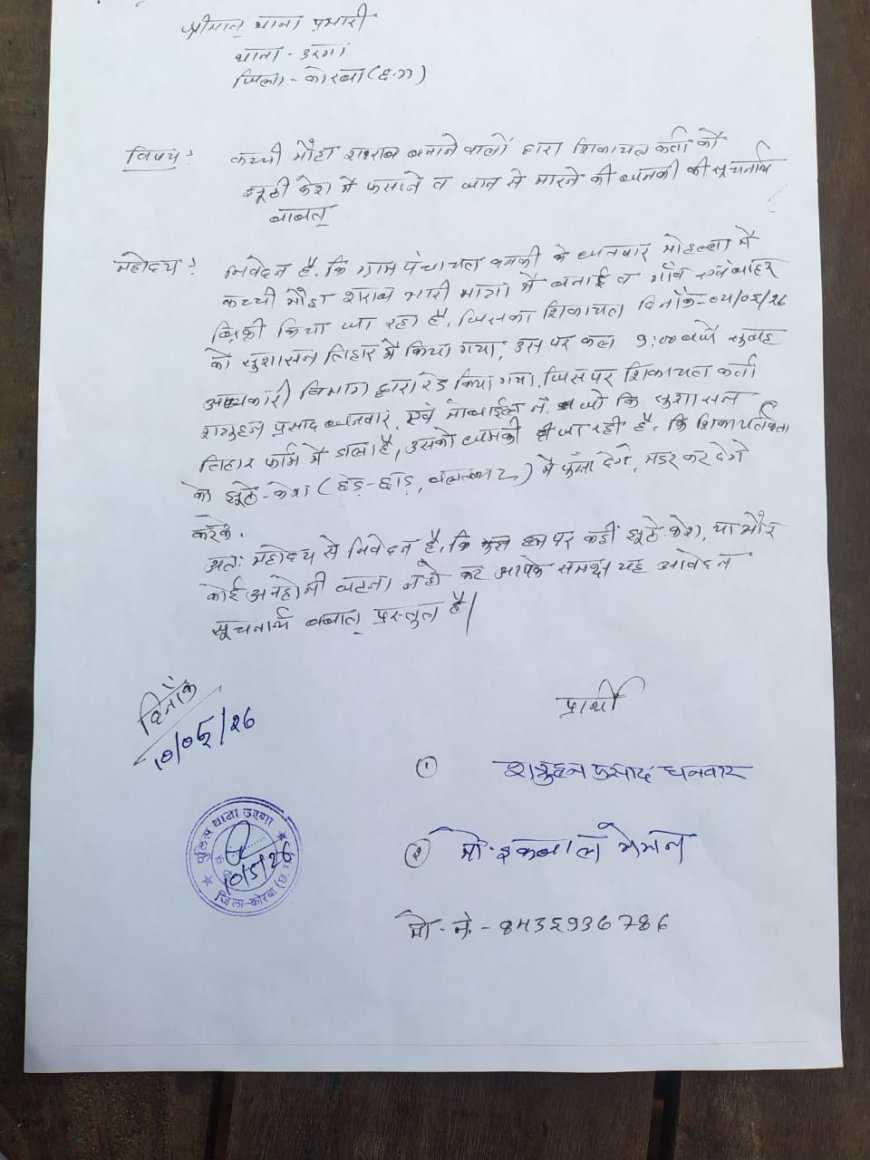 श्रीमान् थाना प्रभारी
थाना - उरगा
जिला - कोरबा (छ.ग)
विषय : कच्ची मौहा शराब बनाने वालों द्वारा शिकायत कर्ता को
झूठी केश में फसाने व जान से मारने की धमकी की सूचनार्थ
बाबत्
महोदय : निवेदन है, कि ग्राम पंचायत के धनवार मोहल्ला में
कच्ची मौहा शराब भारी मात्रा में बनाई व गाँव एवं बाहर
बिक्री किया जा रहा है, जिसका शिकायत दिनाँक - 04/05/26
को सुशासन तिहार में किया गया, उस पर कल 9:00 बजे सुबह
आबकारी विभाग द्वारा रेड किया गया, जिस पर शिकायत कर्ता
शत्रुहन प्रसाद धनवार, एवं मोबाईल नं. जो कि सुशासन
तिहार फॉर्म में डला है, उसको धमकी जा रही है, कि शिकायतकर्ता
को झूठे-केश (छेड़-छाड़, बलात्कार) में फंसा देंगे, मडर कर देंगे
करके.
अतः महोदय से निवेदन है, कि हम पर कहीं झूठे केश, या और
कोई अनहोनी घटना न हो कर आपके समक्ष यह आवेदन
सूचनार्थ बबात् प्रस्तुत है|
दिनाँक
10/05/26
प्रार्थी
① शत्रुहन प्रसाद धनवार
② मो. इकबाल मेमन
मो. नं. - 8435936786
पुलिस थाना उरगा
10/5/26
जिला-कोरबा (छ.ग.)